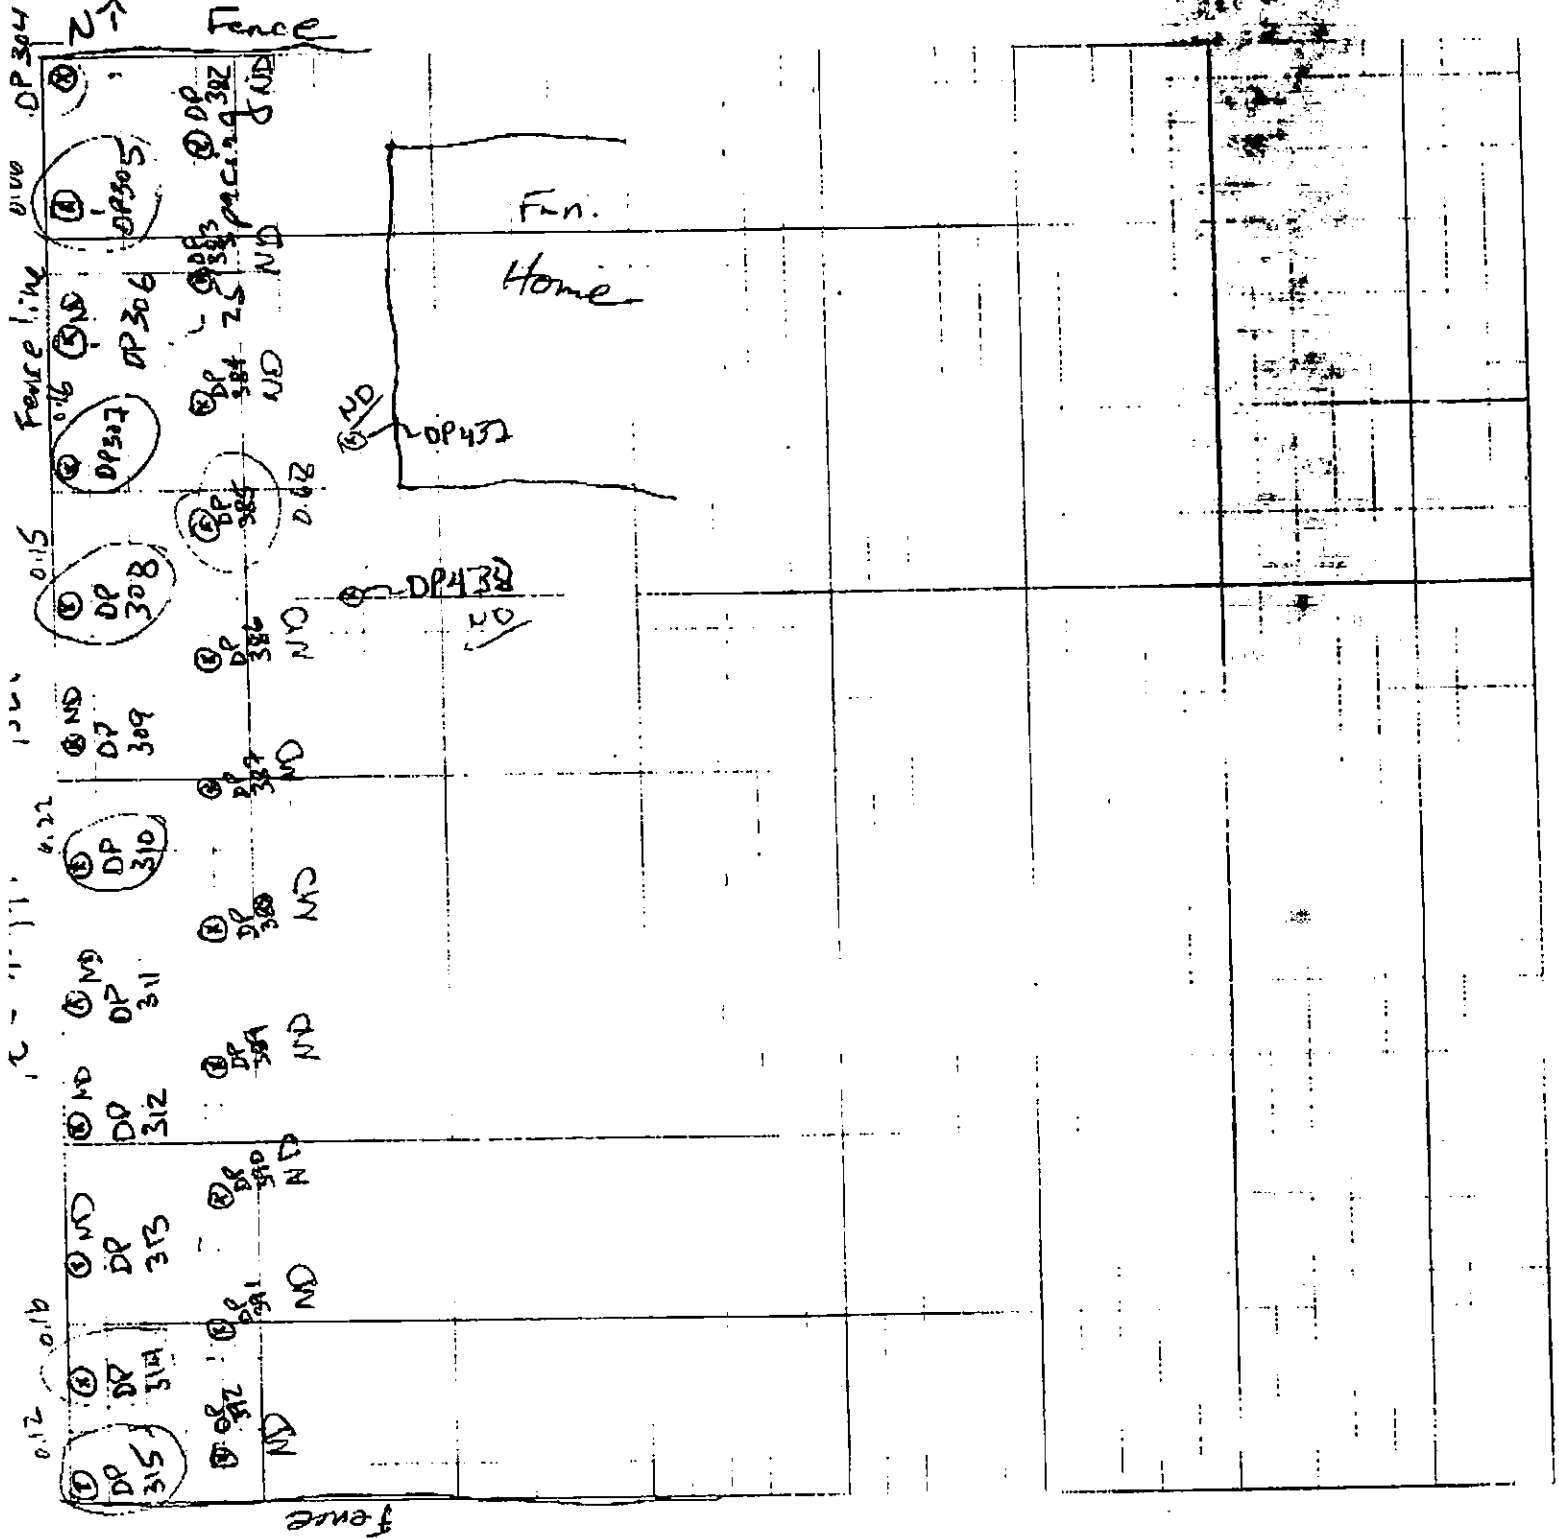 DP 304
N→
Fence
Fence line
DP305
ND
DP 306
0.16
DP307
0.15
DP
308
ND
DP
309
0.22
DP
310
ND
DP
311
ND
DP
312
ND
DP
313
0.16
DP
314
0.12
DP
315
DP
382
ND
25' spacing
DP
383
ND
DP
384
ND
DP
385
DP
386
ND
DP
387
ND
DP
388
ND
DP
389
ND
DP
390
ND
DP
391
ND
DP
392
ND
Fun.
Home
ND
DP432
DP438
ND
Fence